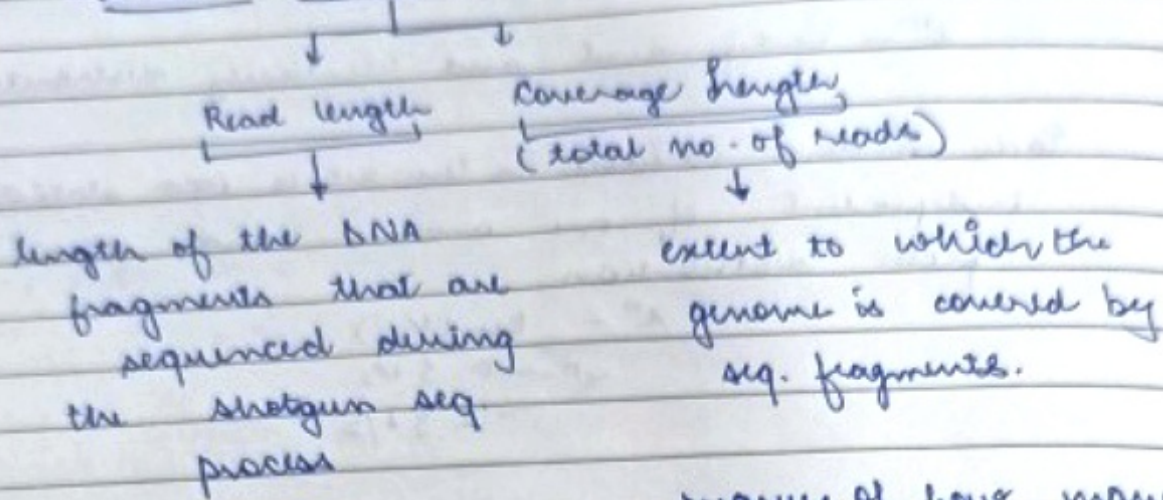 Read length
Coverage Length
(total no. of reads)
length of the DNA
fragments that are
sequenced during
the shotgun seq
process
extent to which the
genome is covered by
seq. fragments.